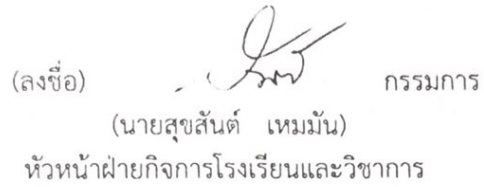 (ลงชื่อ) กรรมการ
(นายสุขสันต์ เหมมัน)
หัวหน้าฝ่ายกิจการโรงเรียนและวิชาการ